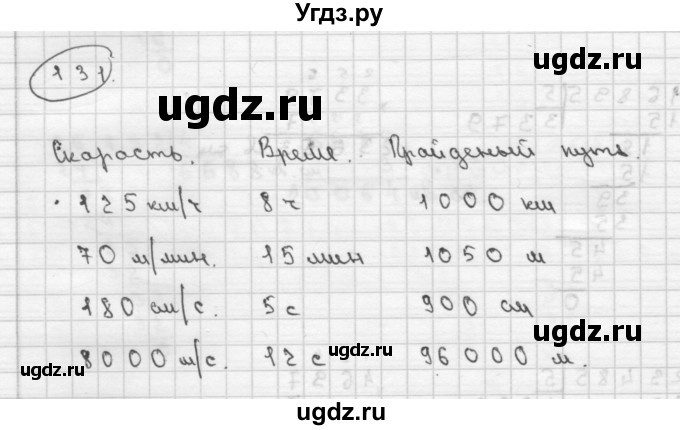 Угдз.ру
131.
ugdz.ru
ugdz.ru
Скарость. Време. Прайденый путь.
125 км/ч 8ч 1000 км
ugdz.ru
70 м/мин. 15 мин 1050 м
180 см/с. 5с 900 см
ugdz.ru
8000 м/с. 12 с 96000 м.
ugdz.ru
ugdz.ru
ugdz.ru
ugdz.ru